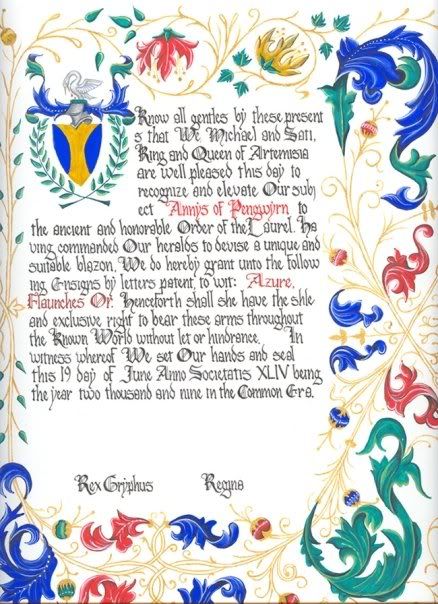 Know all gentles by these present
s that We Michael and Sati,
King and Queen of Artemisia
are well pleased this day to
recognize and elevate Our subj
ect Annys of Pengwyrn to
the ancient and honorable Order of the Laurel. Ha
ving commanded Our heralds to devise a unique and
suitable blazon, We do hereby grant unto the follow
ing Ensigns by letters patent, to wit: Azure,
Flaunches Or. Henceforth shall she have the shle
and exclusive right to bear these arms throughout
the Known World without let or hindrance. In
witness whereof We set Our hands and seal
this 19 day of June Anno Societatis XLIV being
the year two thousand and nine in the Common Era.
Rex Gryphus Regina